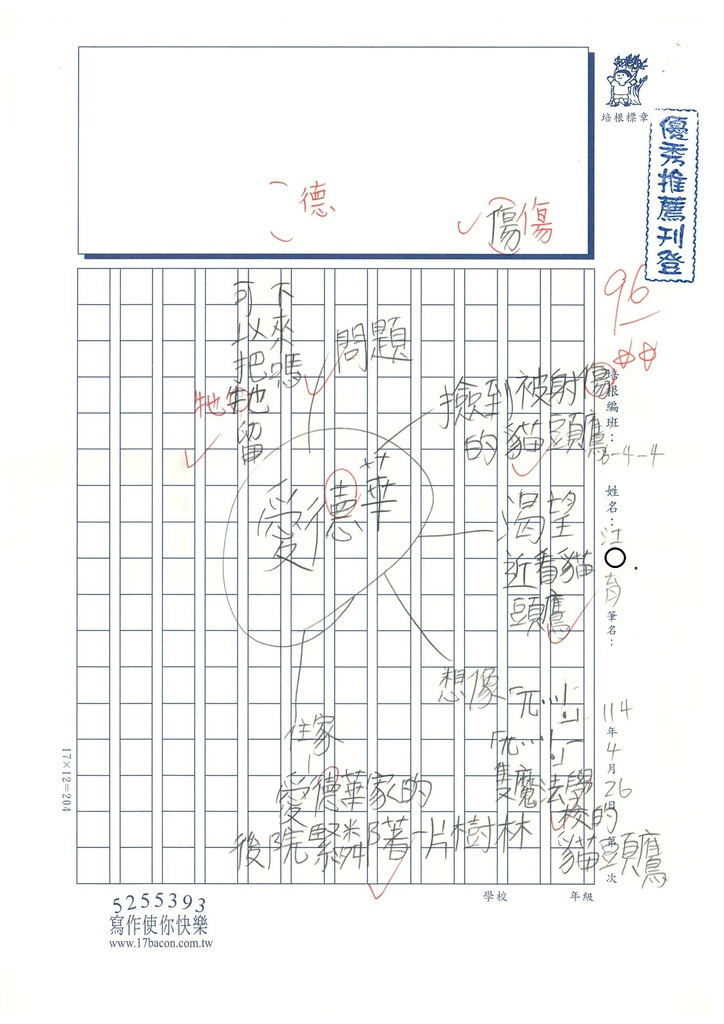 培根標章
優秀推薦刊登
德
傷傷
96
培根編班：
6-4-4
姓名：汪 育
筆名：
114年4月26日第 次
可以把牠留
下來嗎
牠
問題
撿到被射傷
的貓頭鷹
愛德華
渴望
近看貓
頭鷹
想像
隻魔法學
校的
貓頭鷹
住家
愛德華家的
後院緊鄰著一片樹林
17×12=204
學校 年級
5255393
寫作使你快樂
www.17bacon.com.tw